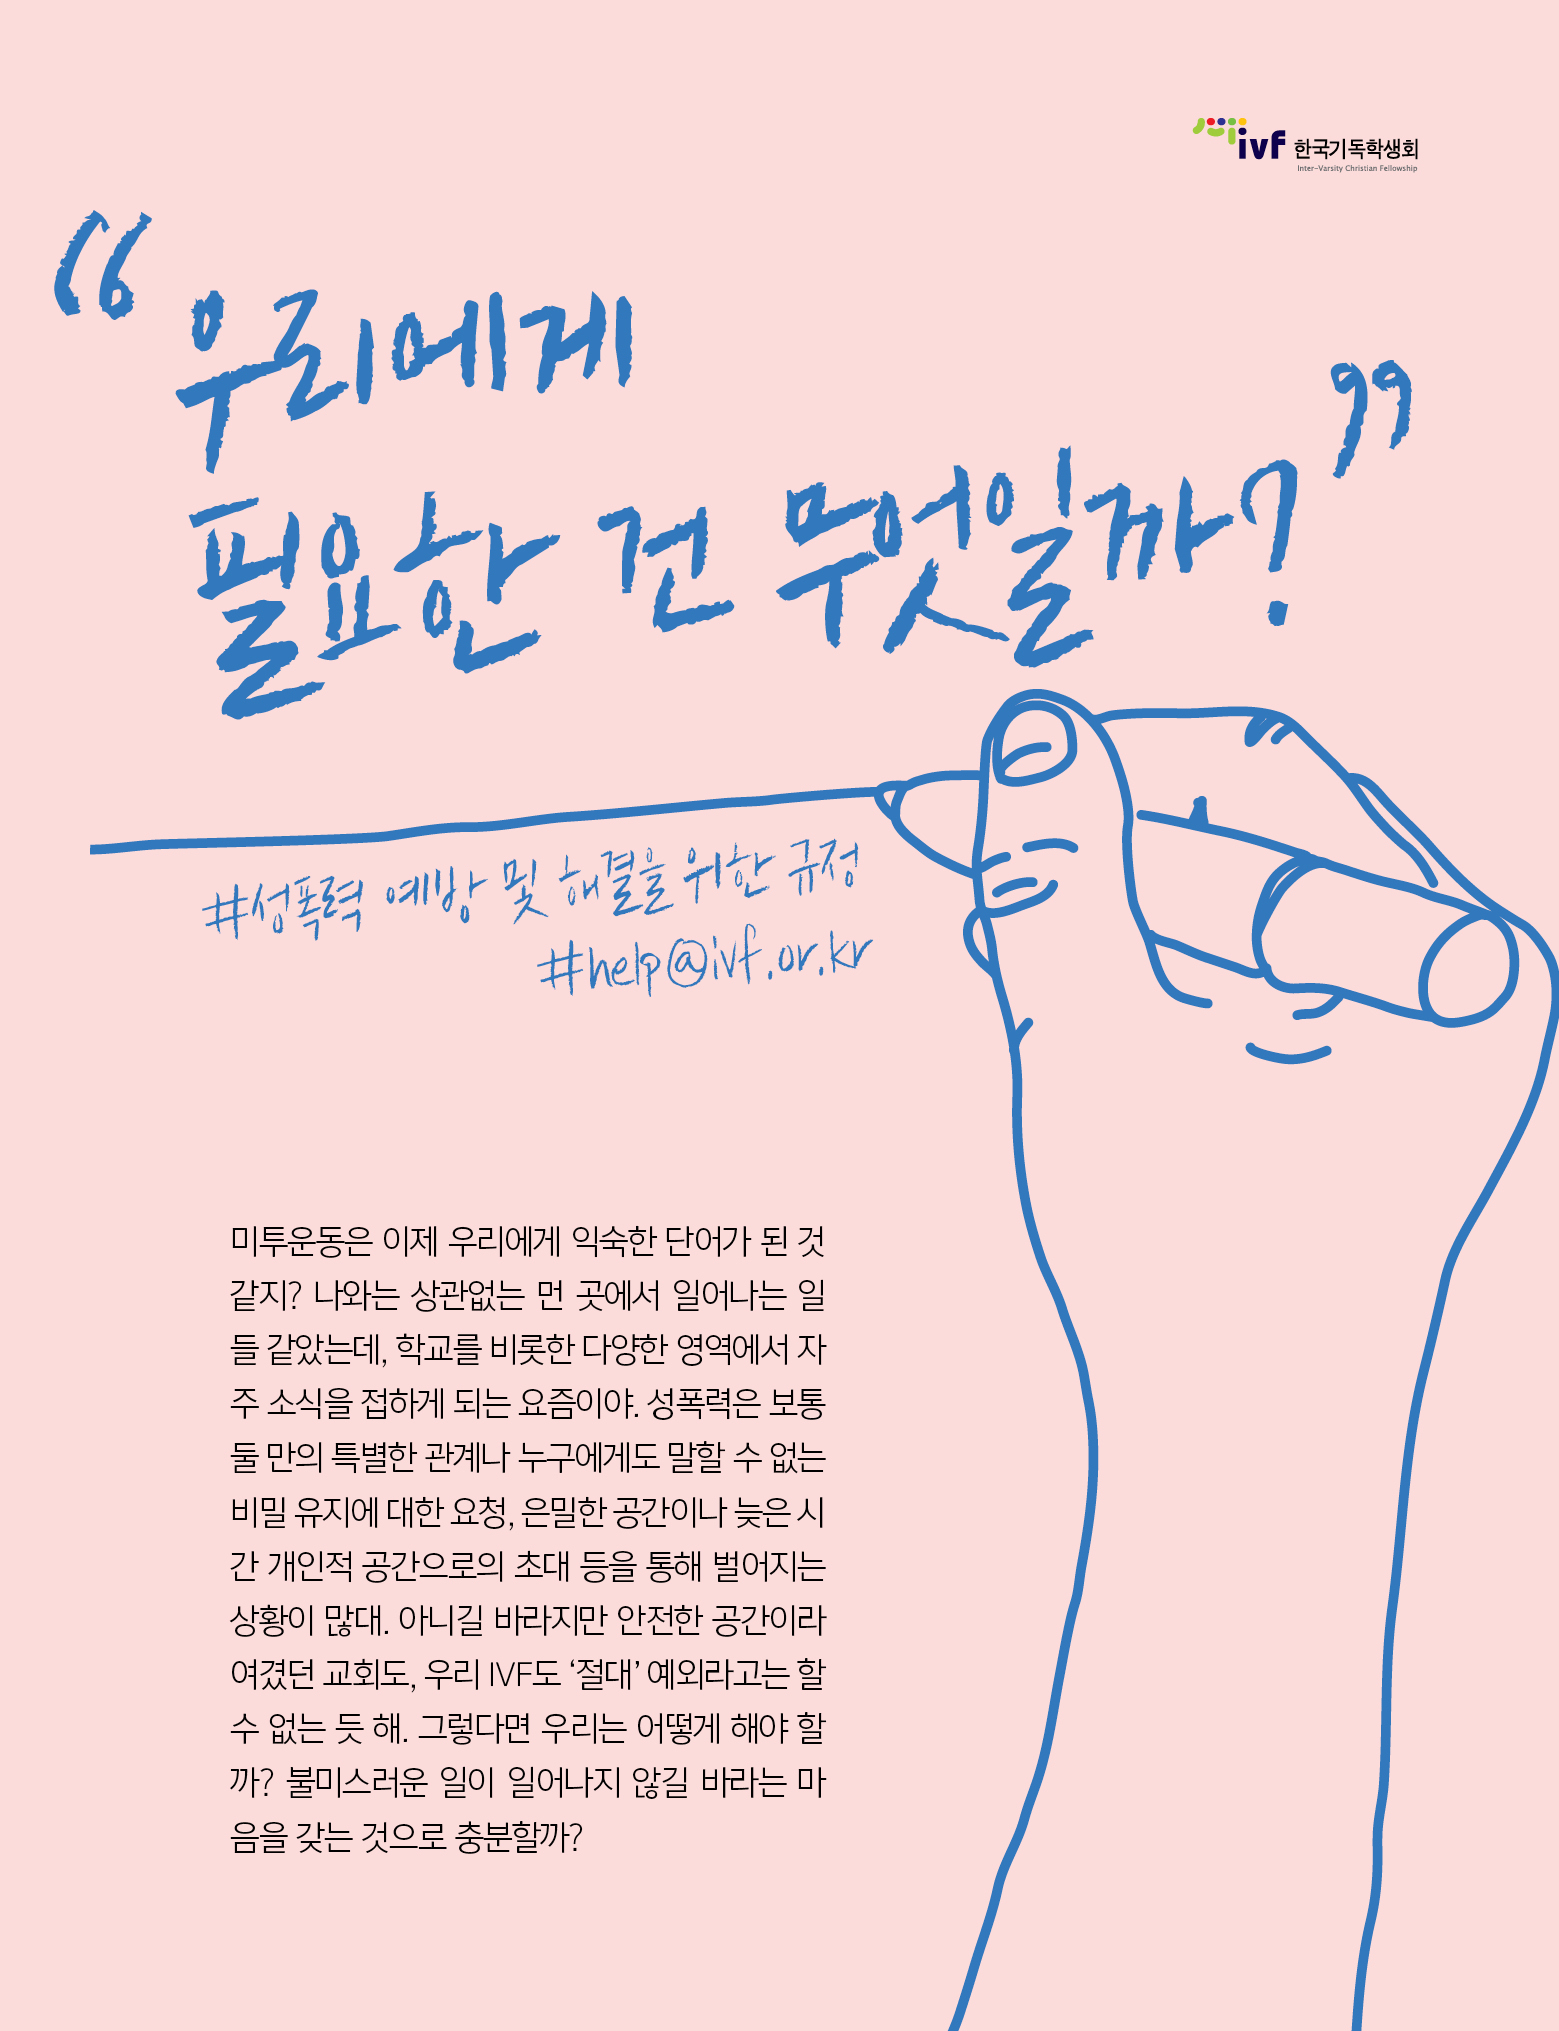 ivf 한국기독학생회
Inter-Varsity Christian Fellowship
“우리에게
필요한 건 무엇일까?”
#성폭력 예방 및 해결을 위한 규정
#help@ivf.or.kr
미투운동은 이제 우리에게 익숙한 단어가 된 것
같지? 나와는 상관없는 먼 곳에서 일어나는 일
들 같았는데, 학교를 비롯한 다양한 영역에서 자
주 소식을 접하게 되는 요즘이야. 성폭력은 보통
둘 만의 특별한 관계나 누구에게도 말할 수 없는
비밀 유지에 대한 요청, 은밀한 공간이나 늦은 시
간 개인적 공간으로의 초대 등을 통해 벌어지는
상황이 많대. 아니길 바라지만 안전한 공간이라
여겼던 교회도, 우리 IVF도 ‘절대’ 예외라고는 할
수 없는 듯 해. 그렇다면 우리는 어떻게 해야 할
까? 불미스러운 일이 일어나지 않길 바라는 마
음을 갖는 것으로 충분할까?